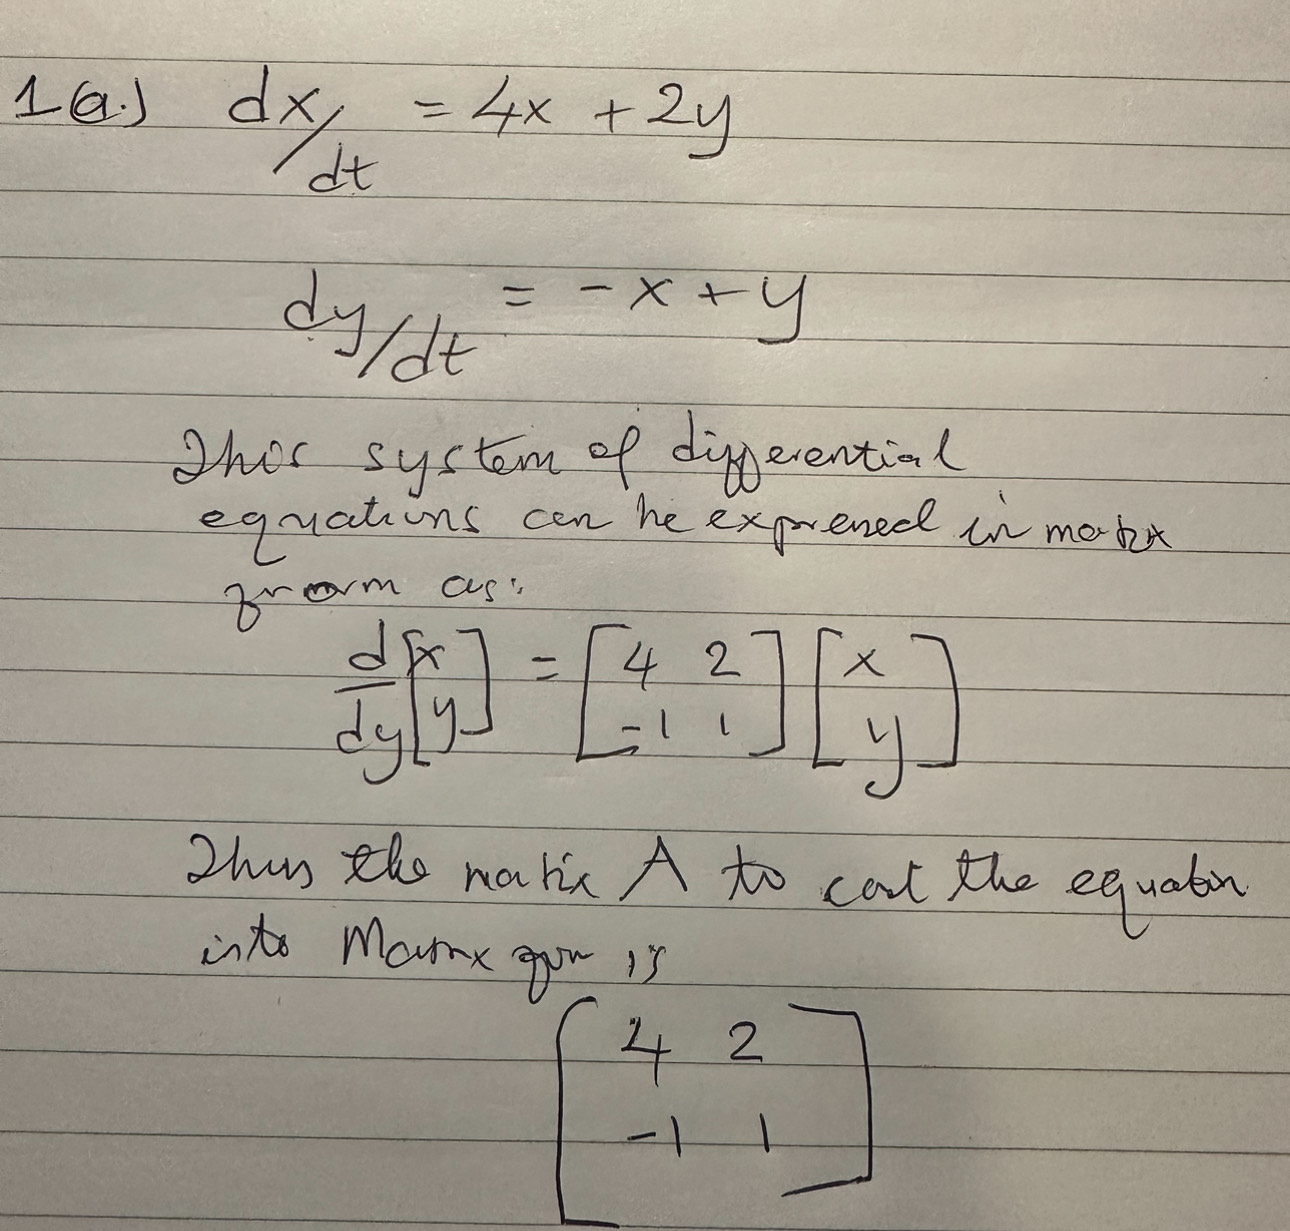 1(a.) dx/dt = 4x + 2y
dy/dt = -x + y
This system of differential
equations can be expressed in matrix
form as:
d/dy [x y] = [4 2 -1 1] [x y]
Thus the matrix A to cast the equation
into Matrix form is
[4 2
-1 1]